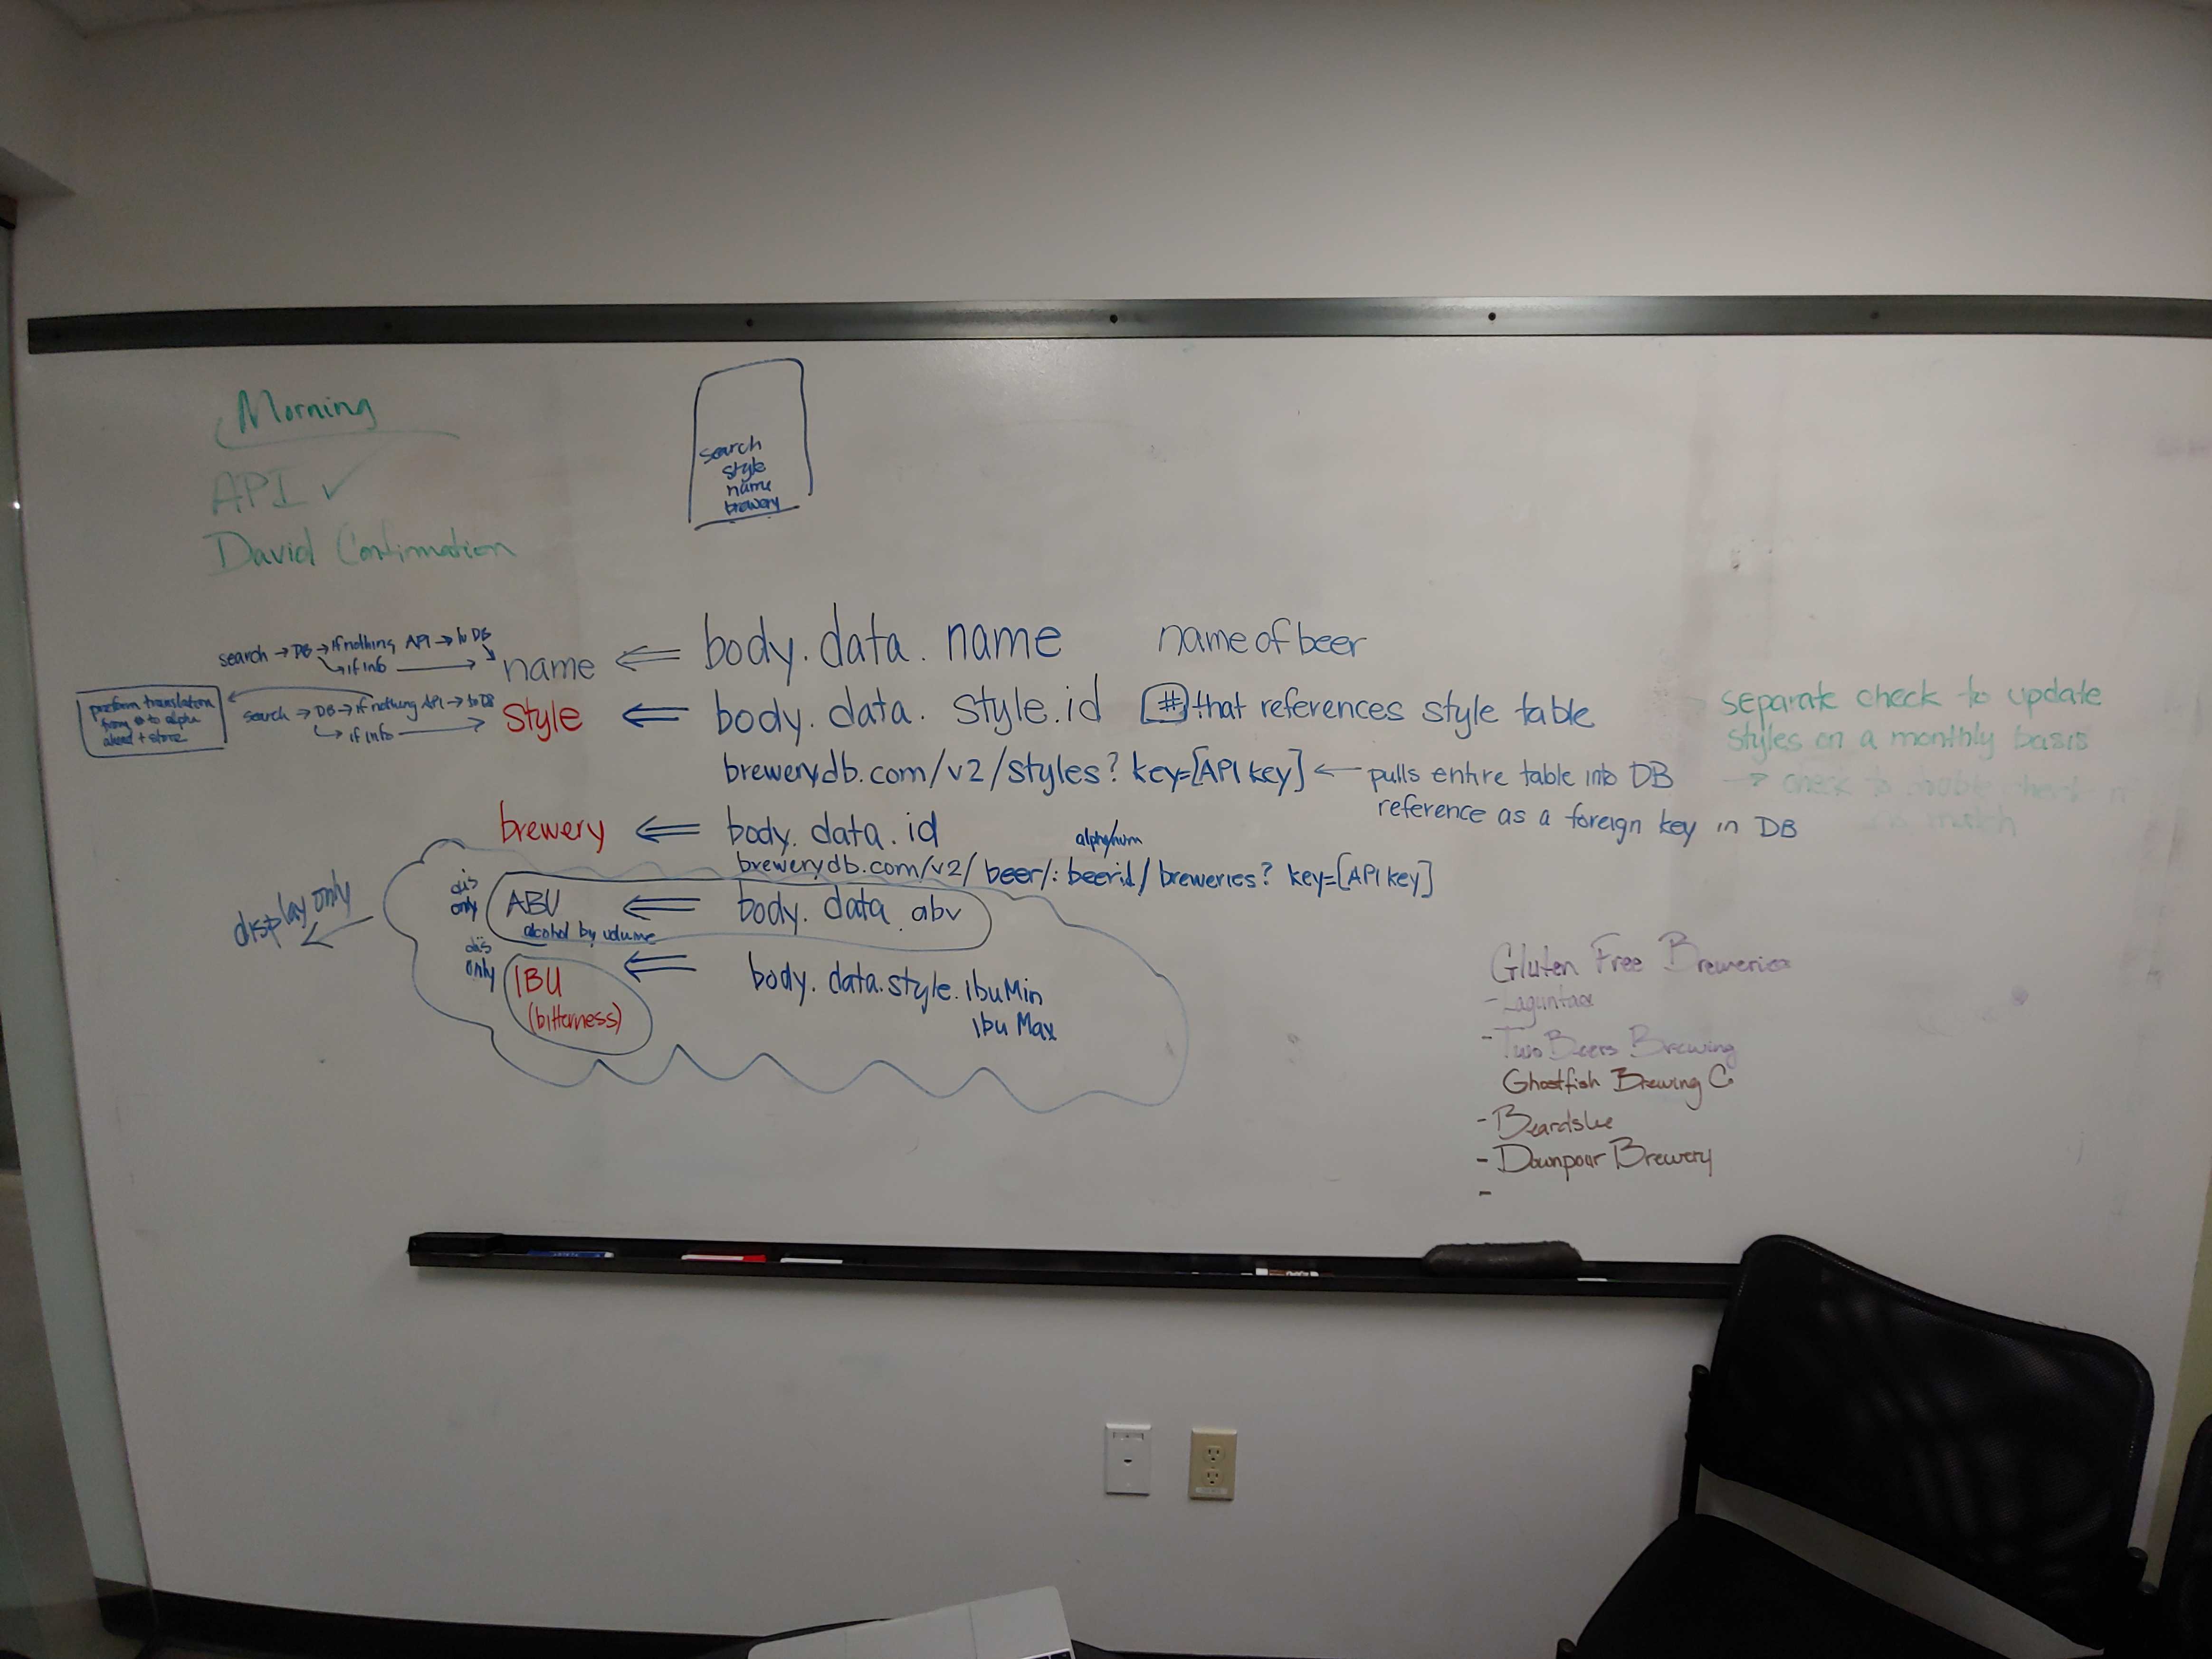 Morning
API ✓
David Confirmation
search
style
name
brewery
search → DB → if nothing API → to DB
↳ if info →
name ⇐ body.data.name name of beer
perform translation
from # to alpha
ahead + store
search → DB → if nothing API → to DB
↳ if info →
style ⇐ body.data.style.id [#] that references style table
brewerydb.com/v2/styles?key=[API key] ← pulls entire table into DB
reference as a foreign key in DB
separate check to update
styles on a monthly basis
→ check to
match
brewery ⇐ body.data.id
alpha/num
brewerydb.com/v2/beer/:beerid/breweries?key=[API key]
display only
dis
only
ABV ⇐ body.data.abv
alcohol by volume
dis
only
IBU ⇐ body.data.style.ibuMin
(bitterness) ibuMax
Gluten Free Breweries
- Two Beers Brewing
Ghostfish Brewing Co
- Beardslee
- Downpour Brewery
-